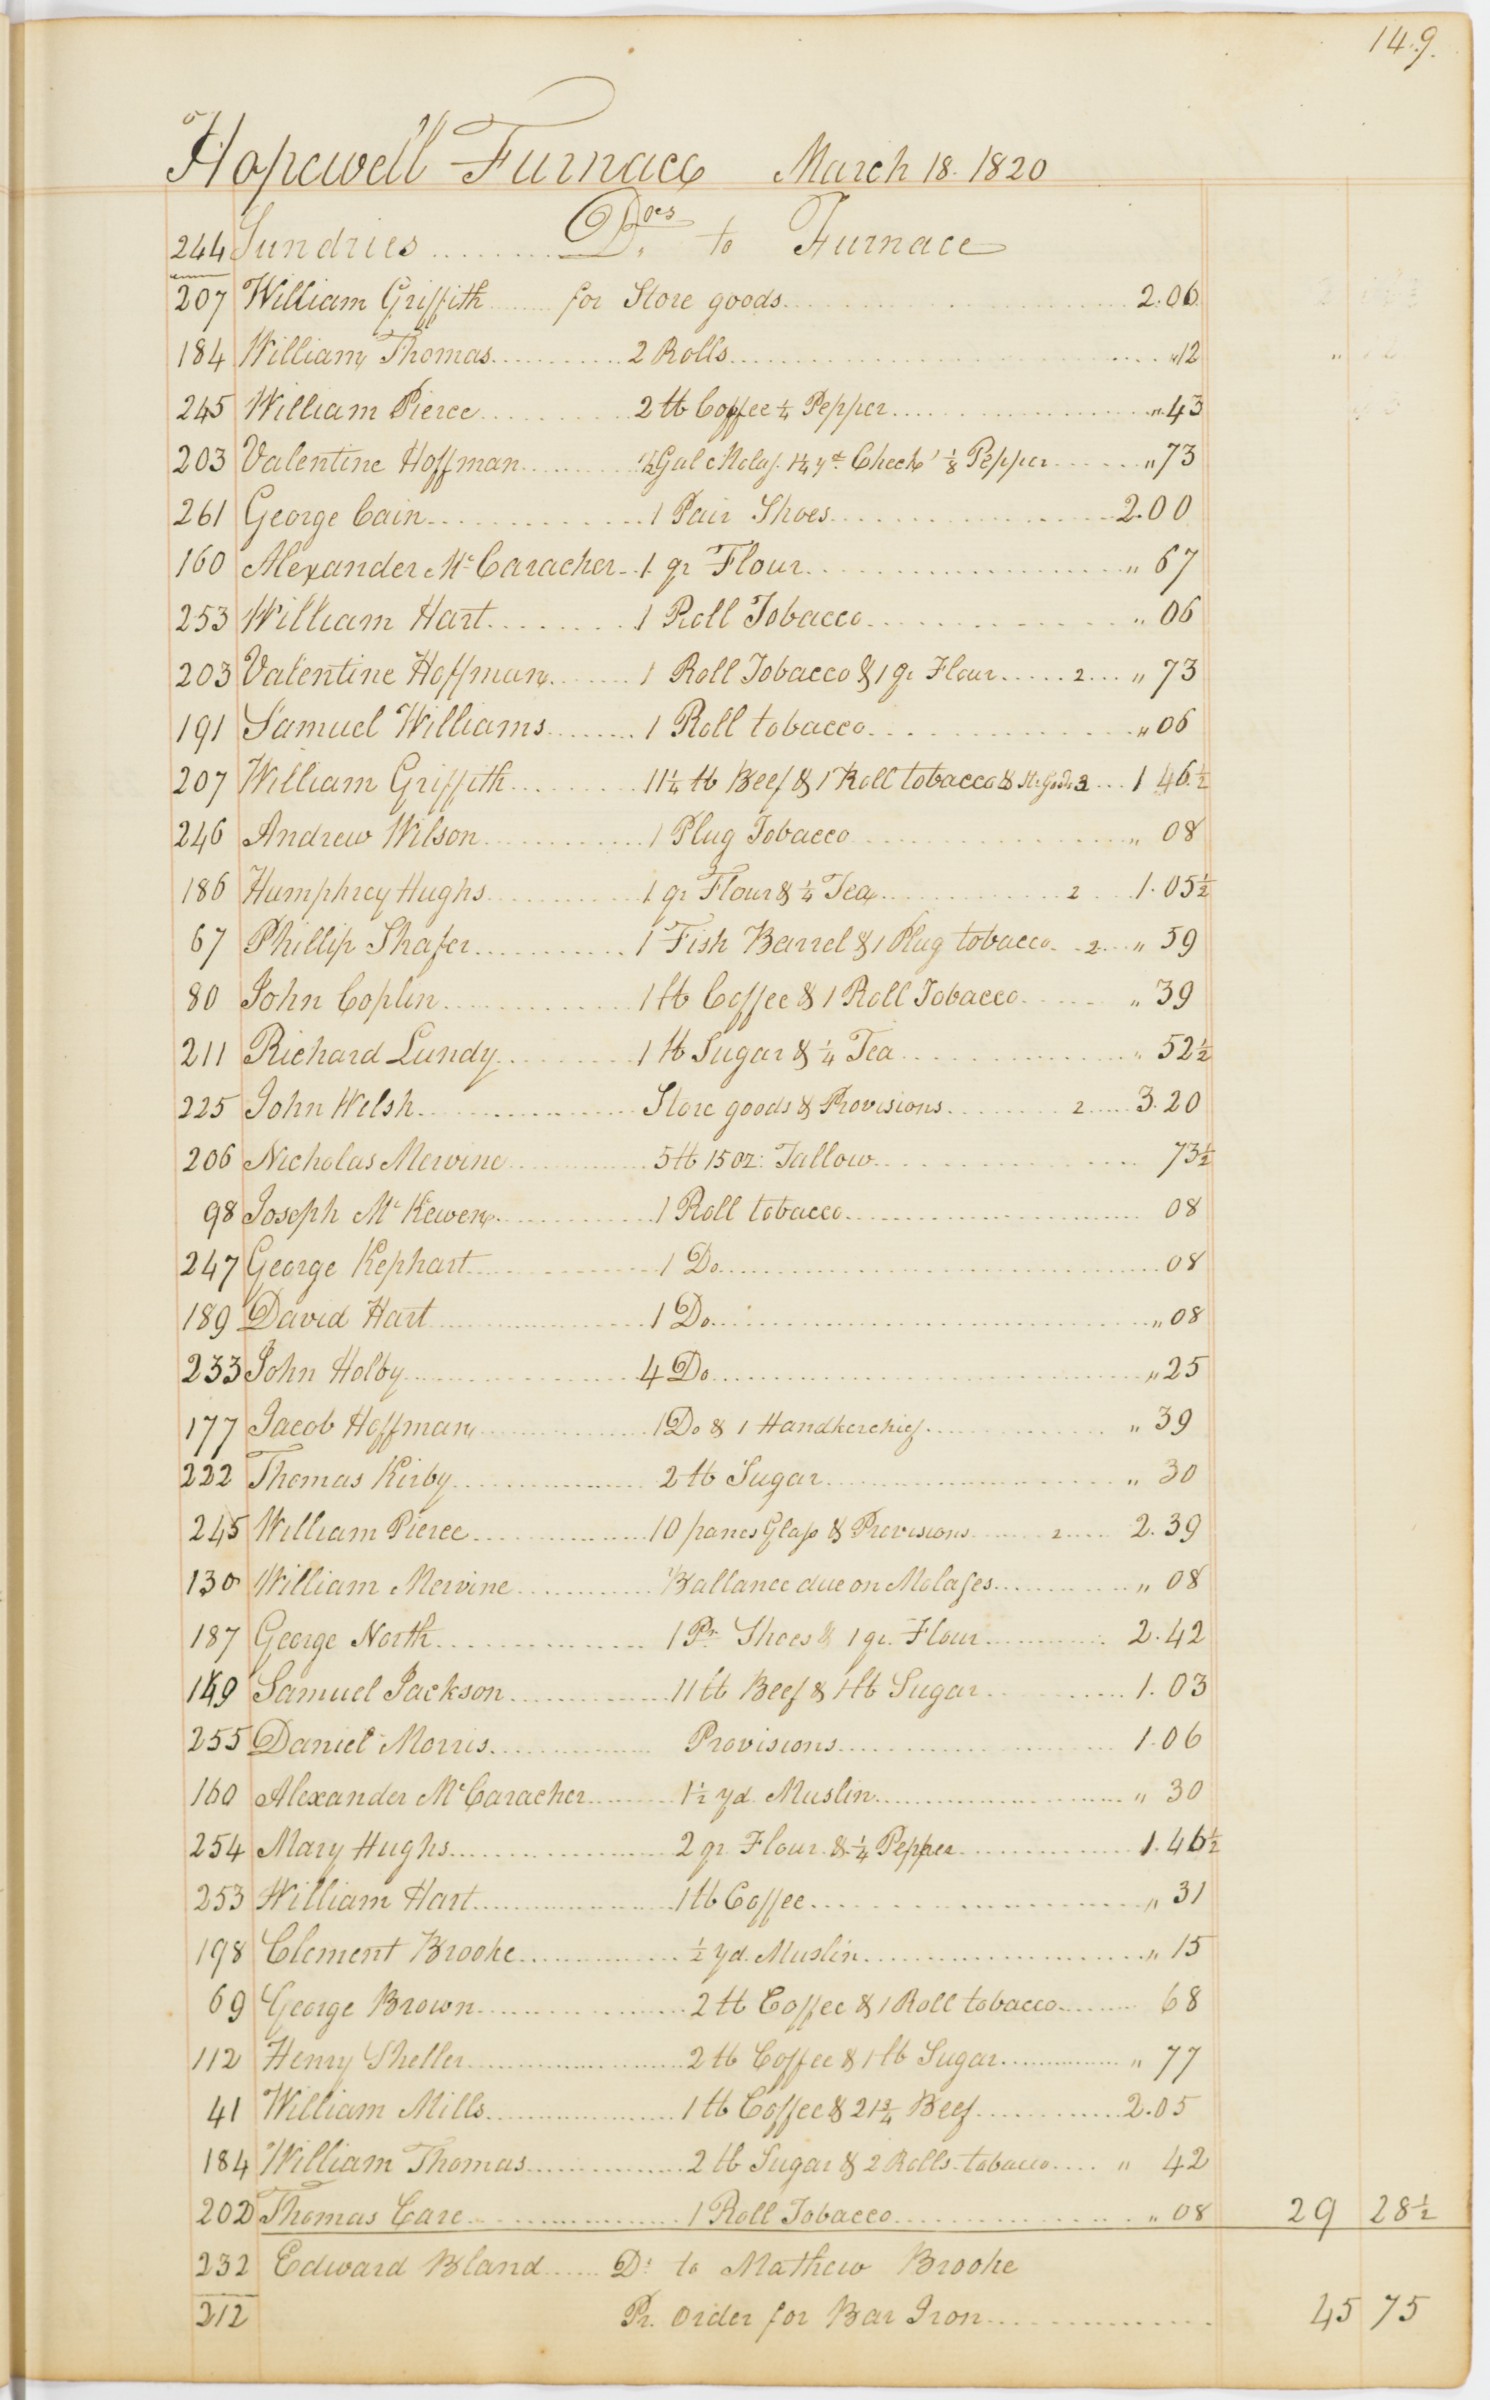 149.
Hopewell Furnace March 18. 1820
244 Sundries ........ Drs to Furnace
207 William Griffith ...... for Store goods ...... 2.06
184 William Thomas ...... 2 Rolls ...... "12
245 William Pierce ...... 2 lb Coffee ¼ Pepper ...... "43
203 Valentine Hoffman ...... ½ Gal Molas. 1¼ yd Check ⅛ Pepper ...... "73
261 George Cain ...... 1 Pair Shoes ...... 2.00
160 Alexander McCaracher .. 1 qr Flour ...... " 67
253 William Hart ...... 1 Roll Tobacco ...... " 06
203 Valentine Hoffman ...... 1 Roll Tobacco & 1 qr Flour ..... 2 ... " 73
191 Samuel Williams ...... 1 Roll tobacco ...... " 06
207 William Griffith ...... 11¼ lb Beef & 1 Roll tobacco & St. Gds 3 ... 1 46½
246 Andrew Wilson ...... 1 Plug Tobacco ...... " 08
186 Humphrey Hughs ...... 1 qr Flour & ¼ Tea ...... 2 ... 1.05½
67 Phillip Shafer ...... 1 Fish Barrel & 1 Plug tobacco .. 2 .. " 59
80 John Coplin ...... 1 lb Coffee & 1 Roll Tobacco ...... " 39
211 Richard Lundy ...... 1 lb Sugar & ¼ Tea ...... " 52½
225 John Welsh ...... Store goods & Provisions ...... 2 ..... 3.20
206 Nicholas Mervine ...... 5 lb 15 oz: Tallow ...... 73½
98 Joseph McKewen ...... 1 Roll tobacco ...... 08
247 George Kephart ...... 1 Do ...... 08
189 David Hart ...... 1 Do ...... "08
233 John Holby ...... 4 Do ...... "25
177 Jacob Hoffman ...... 1 Do & 1 Handkerchief ...... " 39
222 Thomas Kirby ...... 2 lb Sugar ...... " 30
245 William Pierce ...... 10 panes Glass & Provisions ...... 2 ..... 2.39
130 William Mervine ...... Ballance due on Molases ...... " 08
187 George North ...... 1 Pr Shoes & 1 qr. Flour ...... 2.42
149 Samuel Jackson ...... 11 lb Beef & 1 lb Sugar ...... 1.03
255 Daniel Morris ...... Provisions ...... 1.06
160 Alexander McCaracher ...... 1½ yd Muslin ...... " 30
254 Mary Hughs ...... 2 qr Flour & ¼ Pepper ...... 1.46½
253 William Hart ...... 1 lb Coffee ...... " 31
198 Clement Brooke ...... ½ yd. Muslin ...... " 15
69 George Brown ...... 2 lb Coffee & 1 Roll tobacco ...... 68
112 Henry Sheller ...... 2 lb Coffee & 1 lb Sugar ...... " 77
41 William Mills ...... 1 lb Coffee & 21¾ Beef ...... 2.05
184 William Thomas ...... 2 lb Sugar & 2 Rolls tobacco .... " 42
202 Thomas Care ...... 1 Roll Tobacco ...... " 08 29 28½
232 Edward Bland ...... Dr to Mathew Brooke
212 Pr. order for Bar Iron ...... 45 75